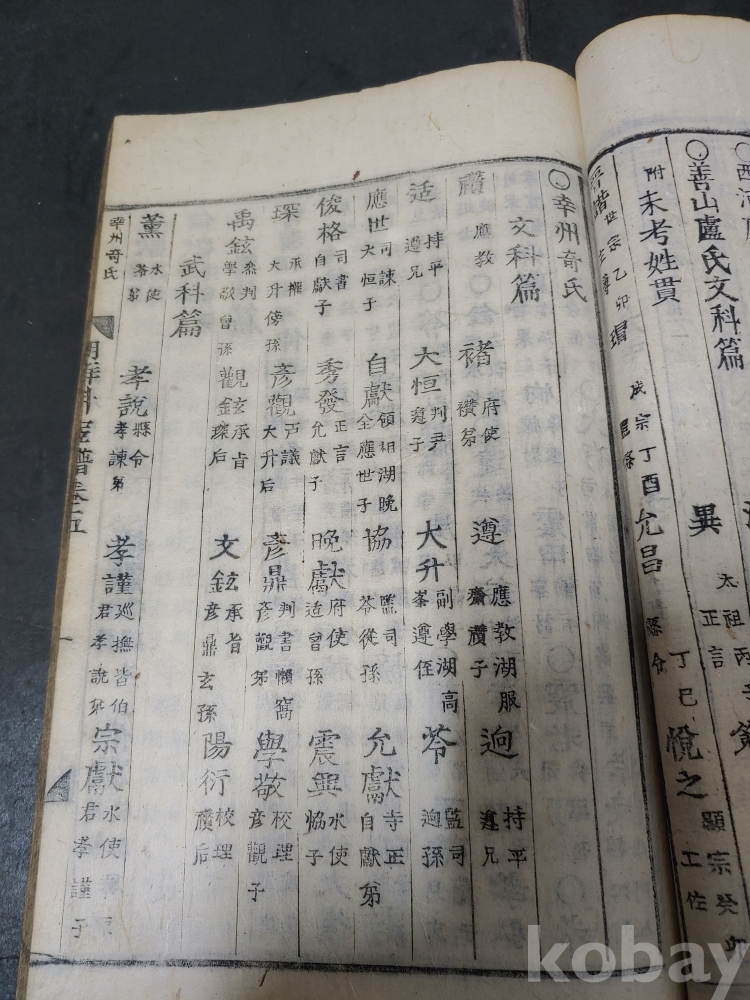 西河
○善山盧氏文科篇
異 太祖丙子 正言
附未考姓貫
諧 世宗乙卯
瑁 成宗丁酉
允昌 縣令
丁巳
悅之 顯宗癸卯 工佐
○幸州奇氏
文科篇
禶 應教 褚 府使 禶弟 遵 應教 湖服 齋 禶子 逈 持平 遵兄
适 持平 遵兄 大恒 判尹 遵子 大升 副學 湖高峯 遵侄 苓 監司 逈孫
應世 司諫 大恒子 自獻 領相 湖晚全 應世子 協 監司 苓從孫 允獻 寺正 自獻弟
俊格 司書 自獻子 秀發 正言 允獻子 晚獻 府使 适曾孫 震興 水使 協子
琛 承權 大升傍孫 彦觀 戶議 大升后 彦鼎 判書 懶窩 彦觀弟 學敬 校理 彦觀子
禹鉉 參判 學敬曾孫 觀鉉 承旨 琛后 文鉉 承旨 彦鼎玄孫 陽衍 校理 禶后
武科篇
薰 水使 苓弟 孝說 縣令 孝諫弟 孝謹 巡撫皆伯君 孝說弟 宗獻 水使 君孝謹子
幸州奇氏
譜卷之五
kobay